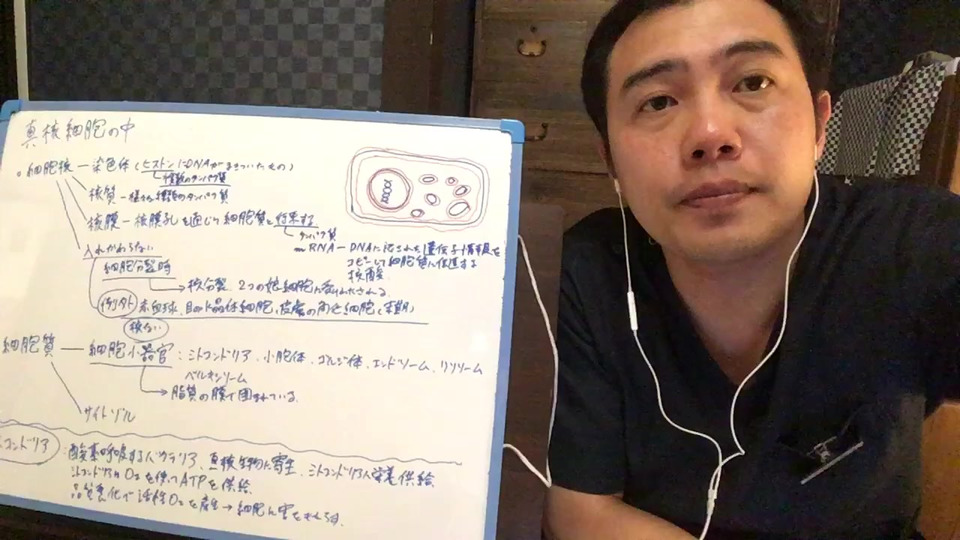 真核細胞の中
細胞核 ― 染色体 (ヒストンにDNAがまきついたもの)
核質 ― 種類のタンパク質
核膜 ― 核膜孔を通じて細胞質と
タンパク質
RNA ― DNAに記された遺伝子情報を
コピーして細胞質に伝達する
核酸
入れかわらない
細胞分裂時
核分裂 2つの娘細胞に
赤血球、目の水晶体細胞、皮膚の角化細胞
核ない
細胞質 ― 細胞小器官：ミトコンドリア、小胞体、ゴルジ体、エンドソーム、リソソーム
ペルオキソーム
脂質の膜で囲まれている。
サイトゾル
コンドリア：酸素呼吸 真核生物に寄生 ミトコンドリアに栄養供給
ミトコンドリアはO₂を使ってATPを供給
品質悪化で活性O₂を産生→細胞に害をもたらす。